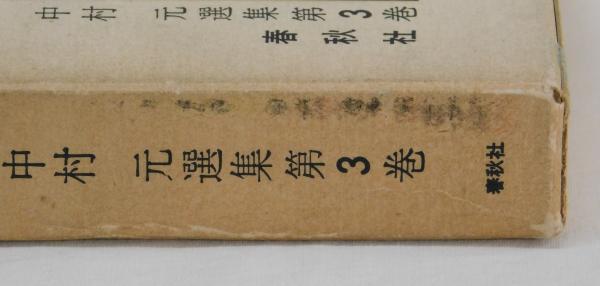 中村 元選集第3巻
春秋社
中村 元選集第3巻
春秋社